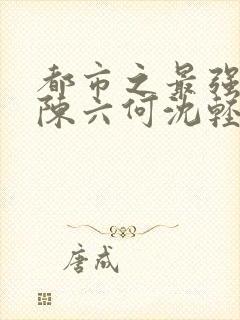 都市之最强
陈六何沈轻
唐成